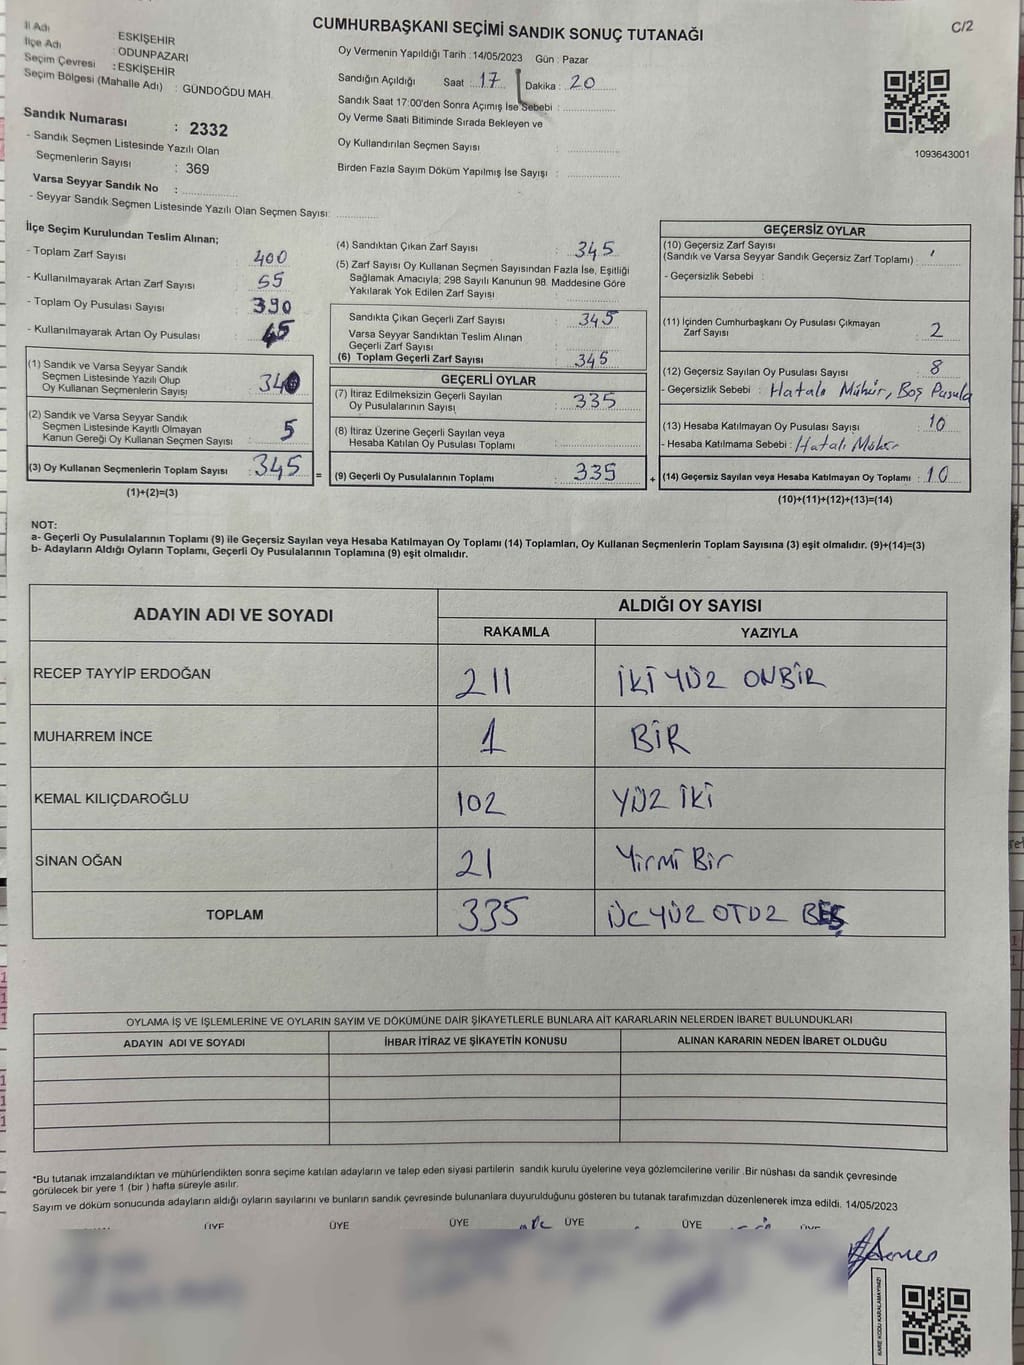 CUMHURBAŞKANI SEÇİMİ SANDIK SONUÇ TUTANAĞI
C/2
İl Adı ESKİŞEHİR
İlçe Adı : ODUNPAZARI
Seçim Çevresi : ESKİŞEHİR
Seçim Bölgesi (Mahalle Adı) : GÜNDOĞDU MAH.
Sandık Numarası : 2332
- Sandık Seçmen Listesinde Yazılı Olan
Seçmenlerin Sayısı : 369
Varsa Seyyar Sandık No :
- Seyyar Sandık Seçmen Listesinde Yazılı Olan Seçmen Sayısı:
Oy Vermenin Yapıldığı Tarih : 14/05/2023 Gün : Pazar
Sandığın Açıldığı Saat : 17 Dakika : 20
Sandık Saat 17:00'den Sonra Açımış İse Sebebi :
Oy Verme Saati Bitiminde Sırada Bekleyen ve
Oy Kullandırılan Seçmen Sayısı :
Birden Fazla Sayım Döküm Yapılmış İse Sayısı :
1093643001
İlçe Seçim Kurulundan Teslim Alınan;
- Toplam Zarf Sayısı : 400
- Kullanılmayarak Artan Zarf Sayısı : 55
- Toplam Oy Pusulası Sayısı : 390
- Kullanılmayarak Artan Oy Pusulası : 45
(1) Sandık ve Varsa Seyyar Sandık
Seçmen Listesinde Yazılı Olup
Oy Kullanan Seçmenlerin Sayısı : 340
(2) Sandık ve Varsa Seyyar Sandık
Seçmen Listesinde Kayıtlı Olmayan
Kanun Gereği Oy Kullanan Seçmen Sayısı : 5
(3) Oy Kullanan Seçmenlerin Toplam Sayısı : 345 =
(1)+(2)=(3)
(4) Sandıktan Çıkan Zarf Sayısı : 345
(5) Zarf Sayısı Oy Kullanan Seçmen Sayısından Fazla İse, Eşitliği
Sağlamak Amacıyla; 298 Sayılı Kanunun 98. Maddesine Göre
Yakılarak Yok Edilen Zarf Sayısı :
Sandıkta Çıkan Geçerli Zarf Sayısı : 345
Varsa Seyyar Sandıktan Teslim Alınan
Geçerli Zarf Sayısı :
(6) Toplam Geçerli Zarf Sayısı : 345
GEÇERLİ OYLAR
(7) İtiraz Edilmeksizin Geçerli Sayılan
Oy Pusulalarının Sayısı : 335
(8) İtiraz Üzerine Geçerli Sayılan veya
Hesaba Katılan Oy Pusulası Toplamı :
(9) Geçerli Oy Pusulalarının Toplamı : 335 +
GEÇERSİZ OYLAR
(10) Geçersiz Zarf Sayısı
(Sandık ve Varsa Seyyar Sandık Geçersiz Zarf Toplamı) :
- Geçersizlik Sebebi :
(11) İçinden Cumhurbaşkanı Oy Pusulası Çıkmayan
Zarf Sayısı : 2
(12) Geçersiz Sayılan Oy Pusulası Sayısı : 8
- Geçersizlik Sebebi : Hatalı Mühür, Boş Pusula
(13) Hesaba Katılmayan Oy Pusulası Sayısı : 10
- Hesaba Katılmama Sebebi : Hatalı Mühür
(14) Geçersiz Sayılan veya Hesaba Katılmayan Oy Toplamı : 10
(10)+(11)+(12)+(13)=(14)
NOT:
a- Geçerli Oy Pusulalarının Toplamı (9) ile Geçersiz Sayılan veya Hesaba Katılmayan Oy Toplamı (14) Toplamları, Oy Kullanan Seçmenlerin Toplam Sayısına (3) eşit olmalıdır. (9)+(14)=(3)
b- Adayların Aldığı Oyların Toplamı, Geçerli Oy Pusulalarının Toplamına (9) eşit olmalıdır.
ADAYIN ADI VE SOYADI ALDIĞI OY SAYISI
RAKAMLA YAZIYLA
RECEP TAYYİP ERDOĞAN 211 İKİ YÜZ ONBİR
MUHARREM İNCE 1 BİR
KEMAL KILIÇDAROĞLU 102 YÜZ İKİ
SİNAN OĞAN 21 Yirmi Bir
TOPLAM 335 ÜÇ YÜZ OTUZ BEŞ
OYLAMA İŞ VE İŞLEMLERİNE VE OYLARIN SAYIM VE DÖKÜMÜNE DAİR ŞİKAYETLERLE BUNLARA AİT KARARLARIN NELERDEN İBARET BULUNDUKLARI
ADAYIN ADI VE SOYADI İHBAR İTİRAZ VE ŞİKAYETİN KONUSU ALINAN KARARIN NEDEN İBARET OLDUĞU
*Bu tutanak imzalandıktan ve mühürlendikten sonra seçime katılan adayların ve talep eden siyasi partilerin sandık kurulu üyelerine veya gözlemcilerine verilir .Bir nüshası da sandık çevresinde
görülecek bir yere 1 (bir ) hafta süreyle asılır.
Sayım ve döküm sonucunda adayların aldığı oyların sayılarını ve bunların sandık çevresinde bulunanlara duyurulduğunu gösteren bu tutanak tarafımızdan düzenlenerek imza edildi. 14/05/2023
ÜYE ÜYE ÜYE ÜYE ÜYE
KARE KODU KARALAMAYINIZ!